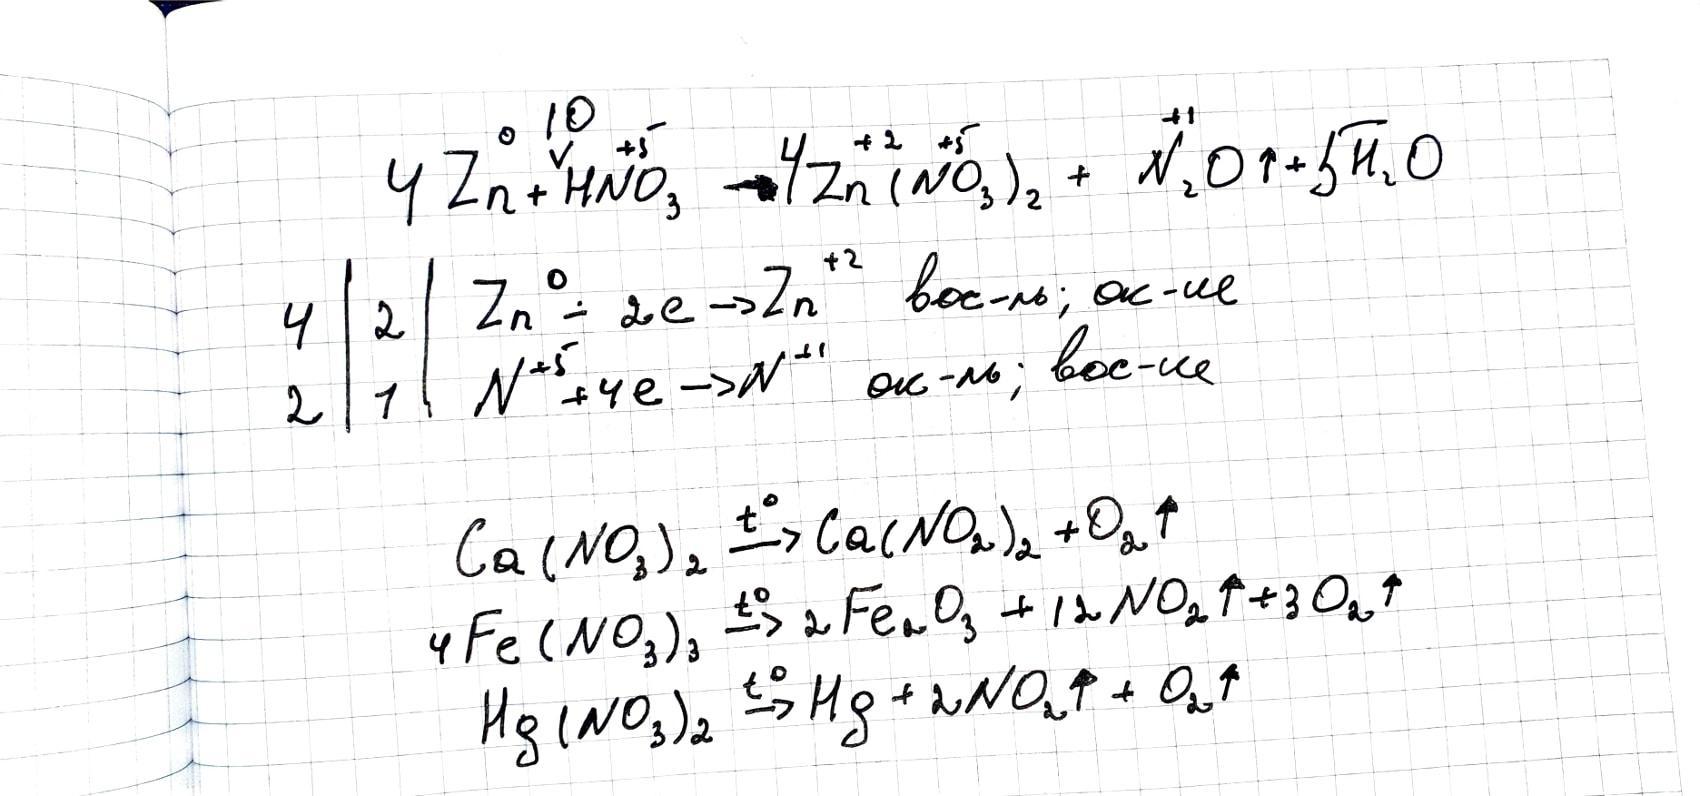 4Zn⁰ + 10HN⁺⁵O₃ → 4Zn⁺²(N⁺⁵O₃)₂ + N⁺¹₂O↑ + 5H₂O
4 | 2 | Zn⁰ - 2e → Zn⁺² вос-ль; ок-ие
2 | 1 | N⁺⁵ + 4e → N⁺¹ ок-ль; вос-ие
Ca(NO₃)₂ t⁰→ Ca(NO₂)₂ + O₂↑
4Fe(NO₃)₃ t⁰→ 2Fe₂O₃ + 12NO₂↑ + 3O₂↑
Hg(NO₃)₂ t⁰→ Hg + 2NO₂↑ + O₂↑